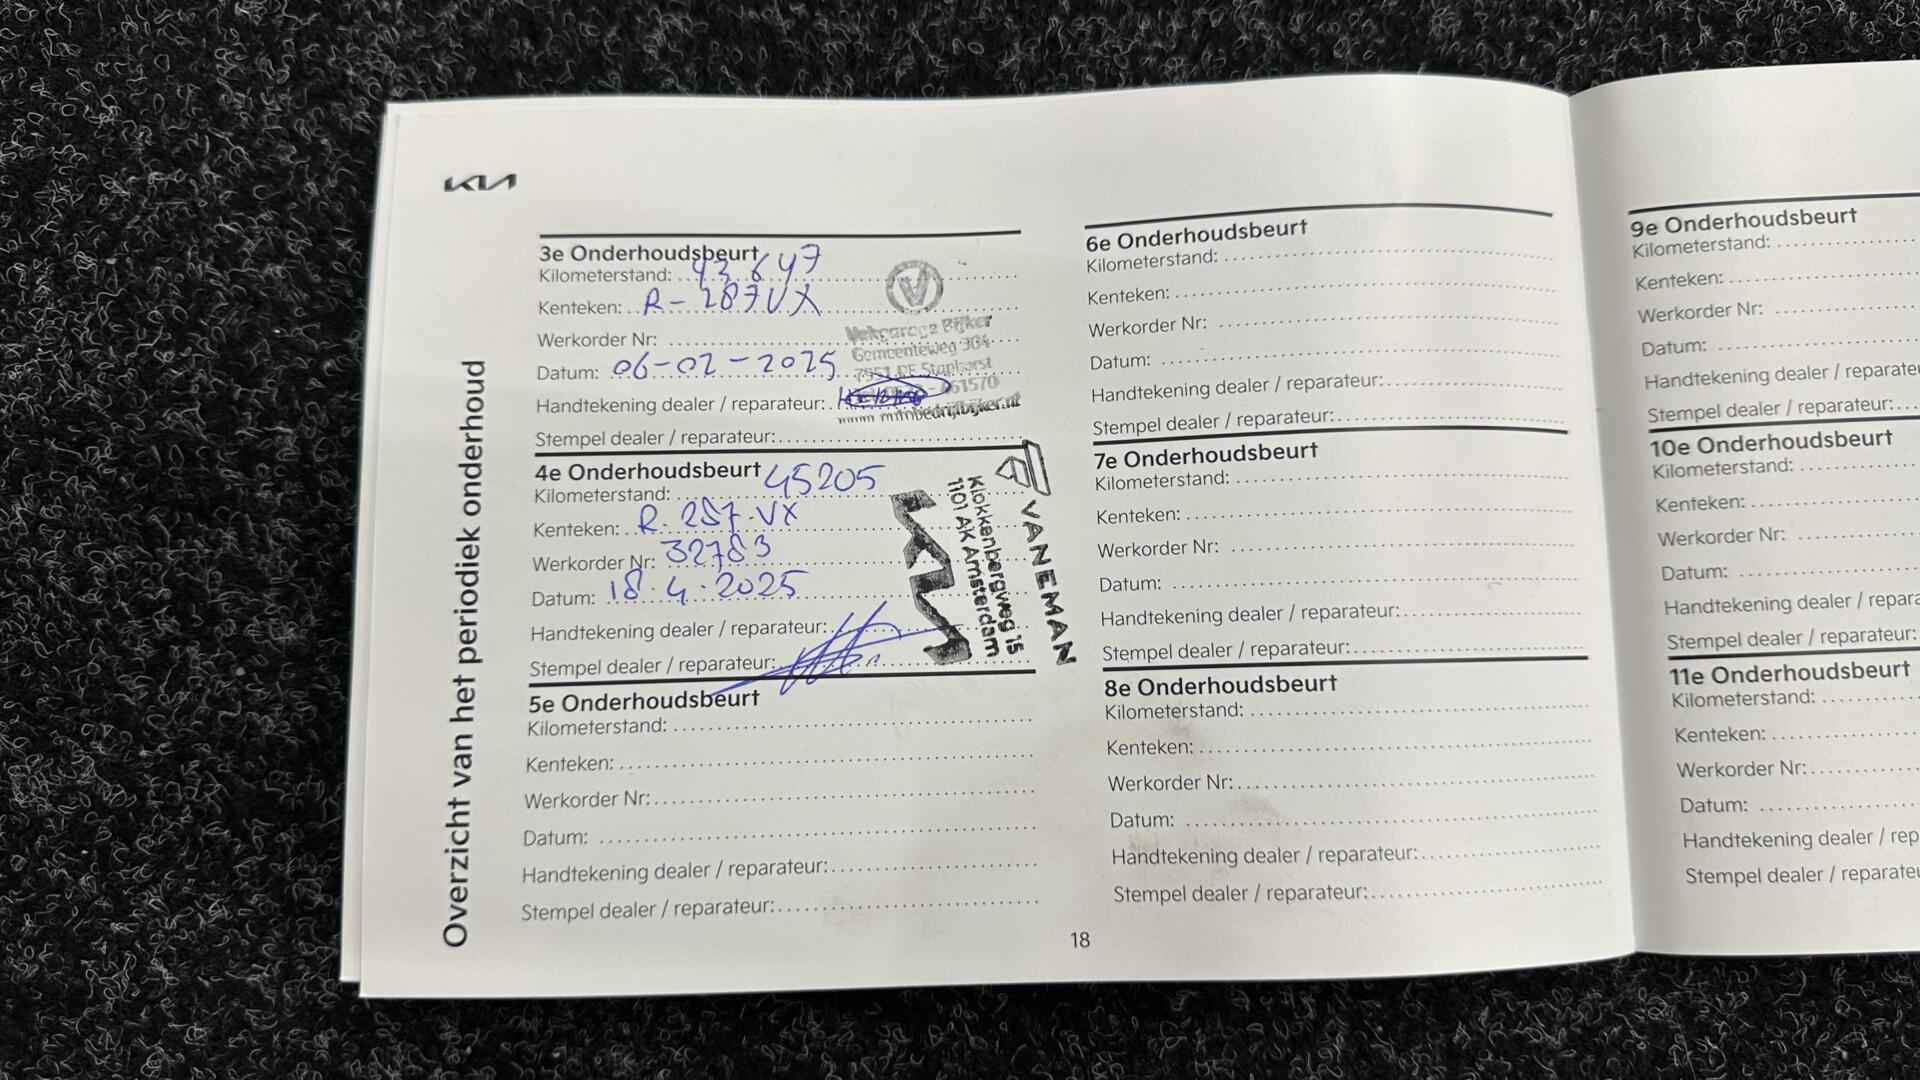 KIA
Overzicht van het periodiek onderhoud
3e Onderhoudsbeurt
Kilometerstand: 43.647
Kenteken: R-287VX
Werkorder Nr:
Datum: 06-02-2025
Handtekening dealer / reparateur:
Stempel dealer / reparateur:
Vakgarage Bijker
Gemeenteweg 304
Staphorst
www.autobedrijfbijker.nl
4e Onderhoudsbeurt
Kilometerstand: 45205
Kenteken: R.287.VX
Werkorder Nr: 32783
Datum: 18.4.2025
Handtekening dealer / reparateur:
Stempel dealer / reparateur:
VANEMAN
Klokkenbergweg 15
1101 AK Amsterdam
KIA
5e Onderhoudsbeurt
Kilometerstand:
Kenteken:
Werkorder Nr:
Datum:
Handtekening dealer / reparateur:
Stempel dealer / reparateur:
6e Onderhoudsbeurt
Kilometerstand:
Kenteken:
Werkorder Nr:
Datum:
Handtekening dealer / reparateur:
Stempel dealer / reparateur:
7e Onderhoudsbeurt
Kilometerstand:
Kenteken:
Werkorder Nr:
Datum:
Handtekening dealer / reparateur:
Stempel dealer / reparateur:
8e Onderhoudsbeurt
Kilometerstand:
Kenteken:
Werkorder Nr:
Datum:
Handtekening dealer / reparateur:
Stempel dealer / reparateur:
18
9e Onderhoudsbeurt
Kilometerstand:
Kenteken:
Werkorder Nr:
Datum:
Handtekening dealer / reparate
Stempel dealer / reparateur:
10e Onderhoudsbeurt
Kilometerstand:
Kenteken:
Werkorder Nr:
Datum:
Handtekening dealer / repara
Stempel dealer / reparateur:
11e Onderhoudsbeurt
Kilometerstand:
Kenteken:
Werkorder Nr:
Datum:
Handtekening dealer / rep
Stempel dealer / reparateu